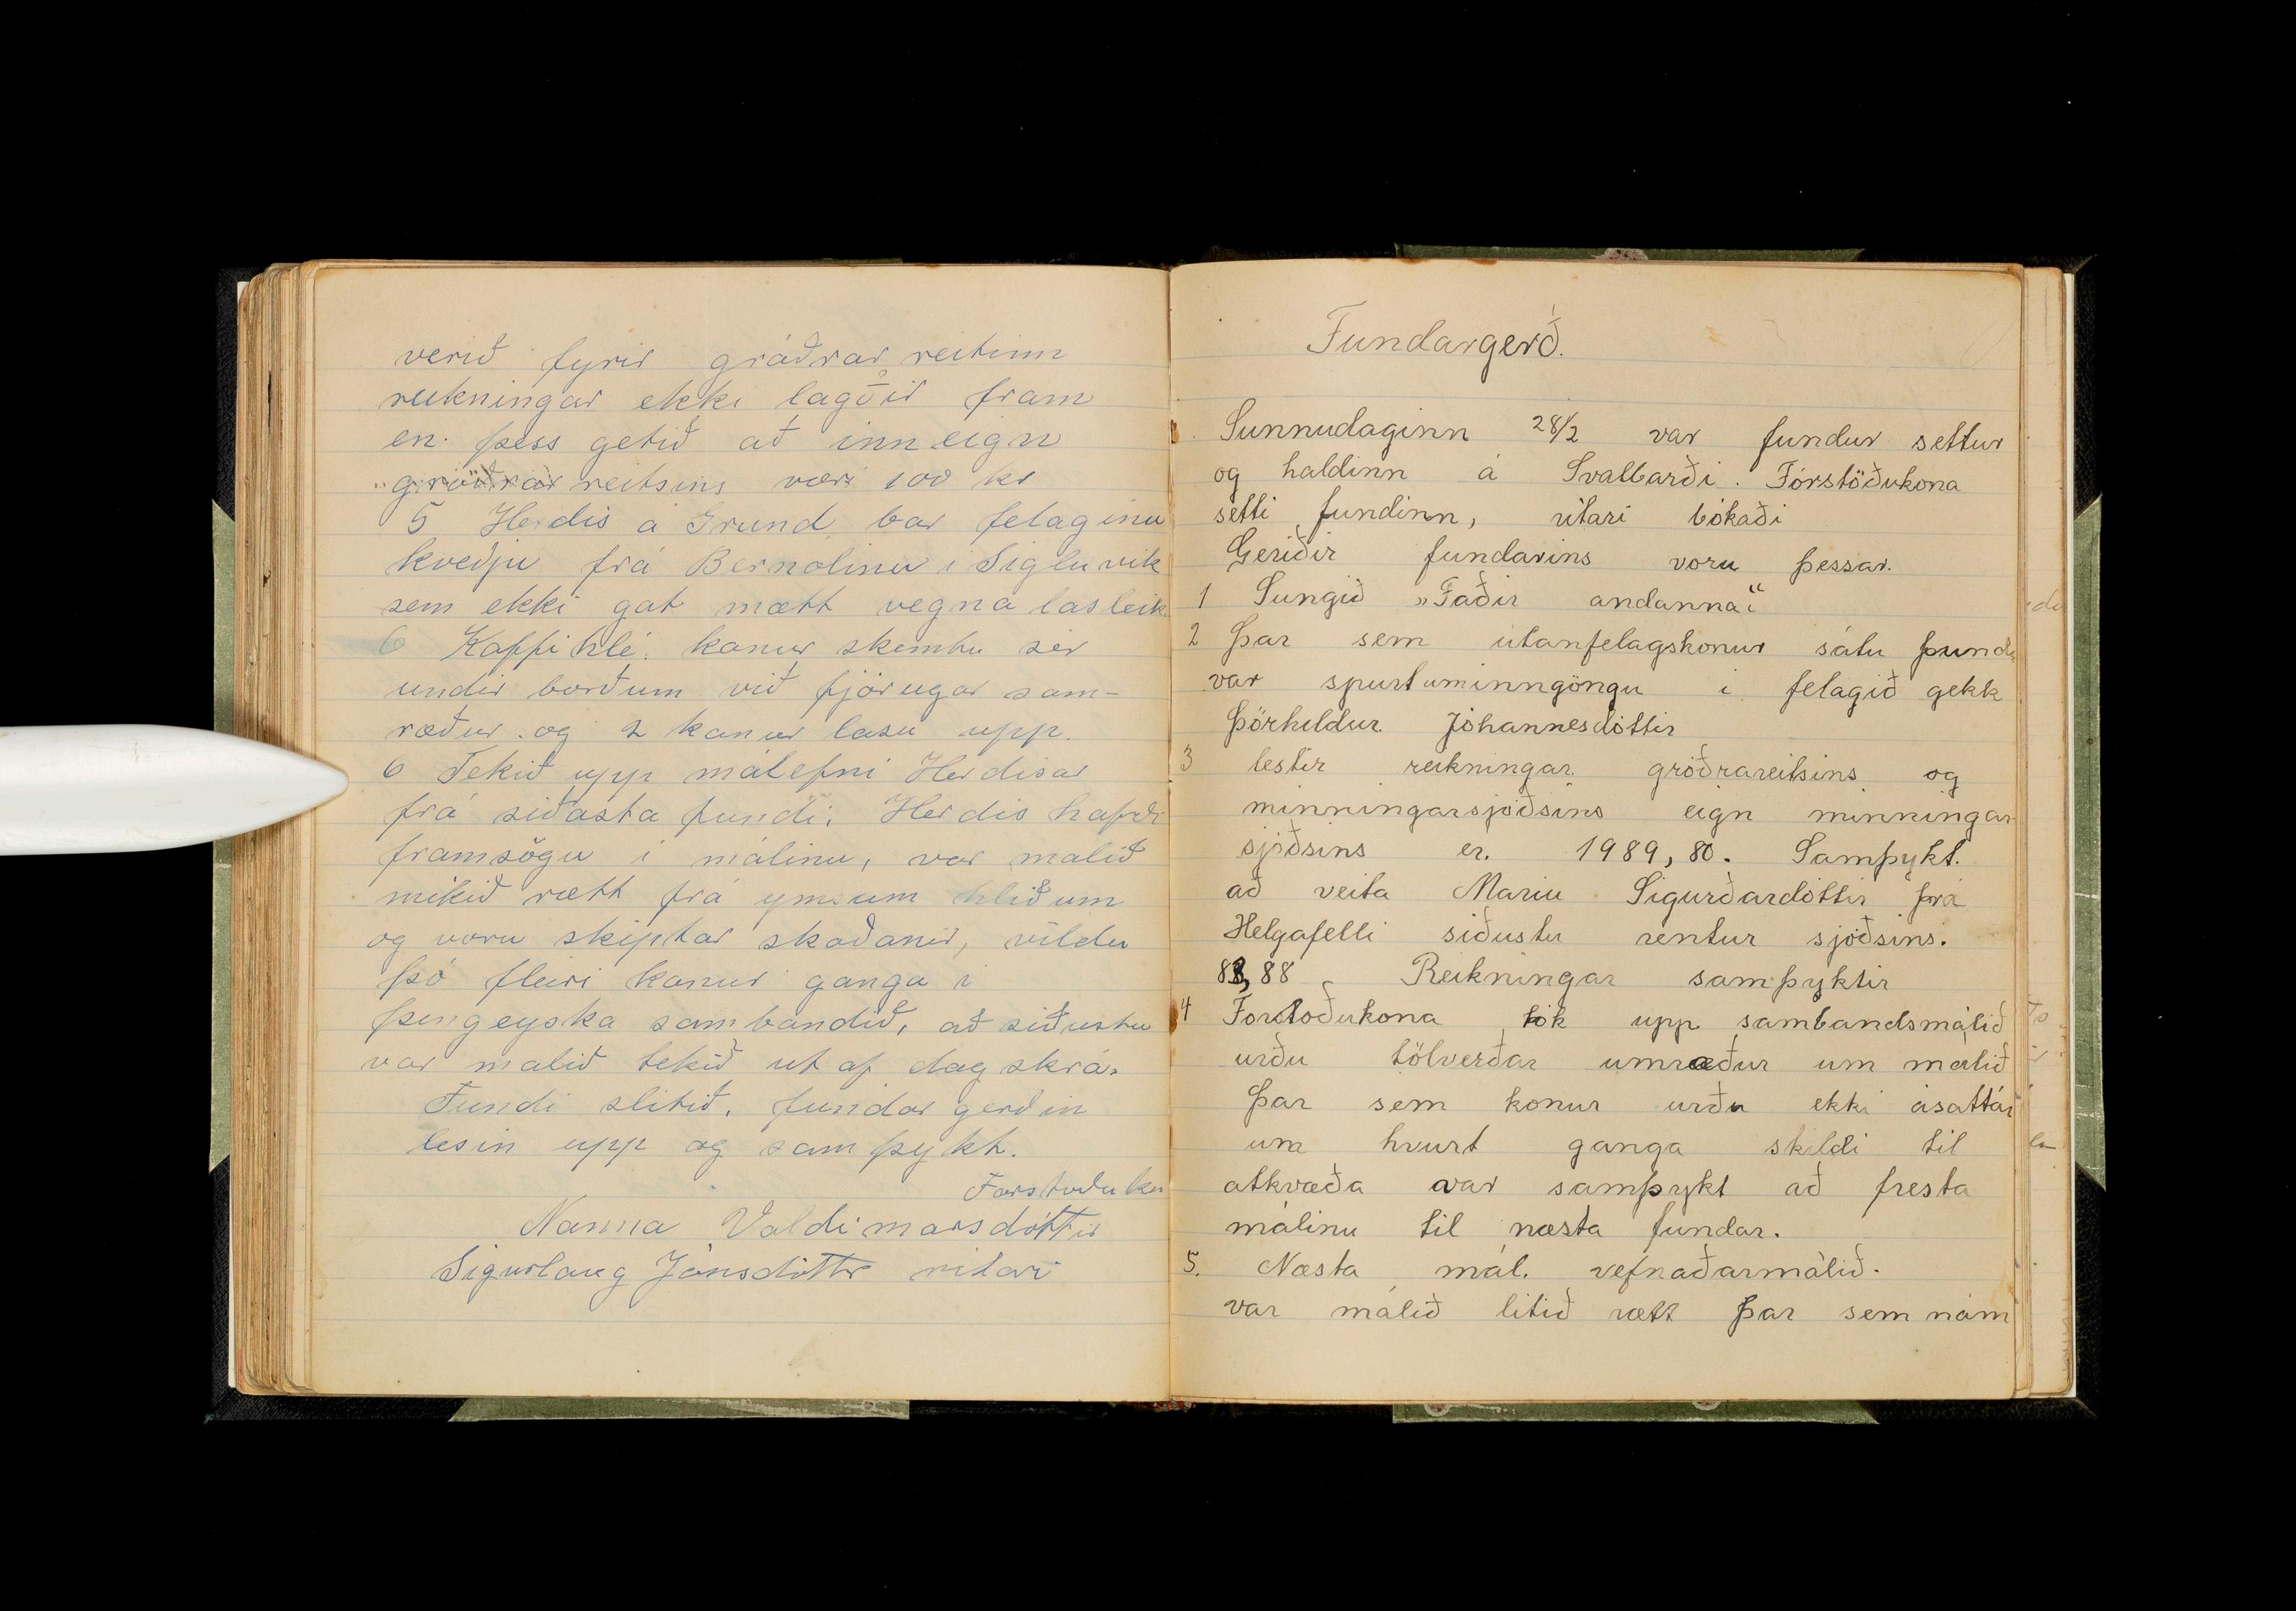 verið fyrir gráðrar reitinn
reikningar ekki lagðir fram
en þess getið að inneign
gróðrar reitsins væri 100 kr
5 Herdis á Grund bar felaginu
kveðju frá Bernolinu i Sigluvik
sem ekki gat mætt vegna lasleik
6 Kaffihlé. konur skemtu sér
undir borðum við fjörugar sam-
ræður og 2 konur lasu upp.
6 Tekið upp málefni Herdisar
frá siðasta fundi. Herdis hafði
framsögu i málinu, var malið
mikið rætt frá ymsum hliðum
og voru skiptar skoðanir, vildu
þó fleiri konur ganga i
þingeyska sambandið, að siðustu
var malið tekið ut af dagskrá.
Fundi slitið, fundar gerðin
lesin upp og samþykt.
Forstoðuko
Nanna Valdimarsdóttir
Sigurlaug Jónsdóttir ritari
Fundargerð.
Sunnudaginn 28/2 var fundur settur
og haldinn á Svalbarði. Fórstöðukona
setti fundinn, ritari bókaði
Geriðir fundarins voru þessar.
1 Sungið „Faðir andanna"
2 Þar sem utanfelagskonur sátu fundi
var spurt uminngöngu i felagið gekk
Þórhildur Jóhannesdóttir
3 lestir reikningar gróðrareitsins og
minningarsjóðsins eign minningar
sjóðsins er. 1989,80. Samþykt.
að veita Mariu Sigurðardóttir frá
Helgafelli siðustu rentur sjóðsins.
88,88 Reikningar samþyktir
4 Forstoðukona tók upp sambandsmálið
urðu tölverðar umræður um malið
Þar sem konur urðu ekki ásattár
um hvurt ganga skildi til
atkvæða var samþykt að fresta
málinu til næsta fundar.
5. Næsta mál. vefnaðarmálið.
var málið litið rætt Þar sem nám